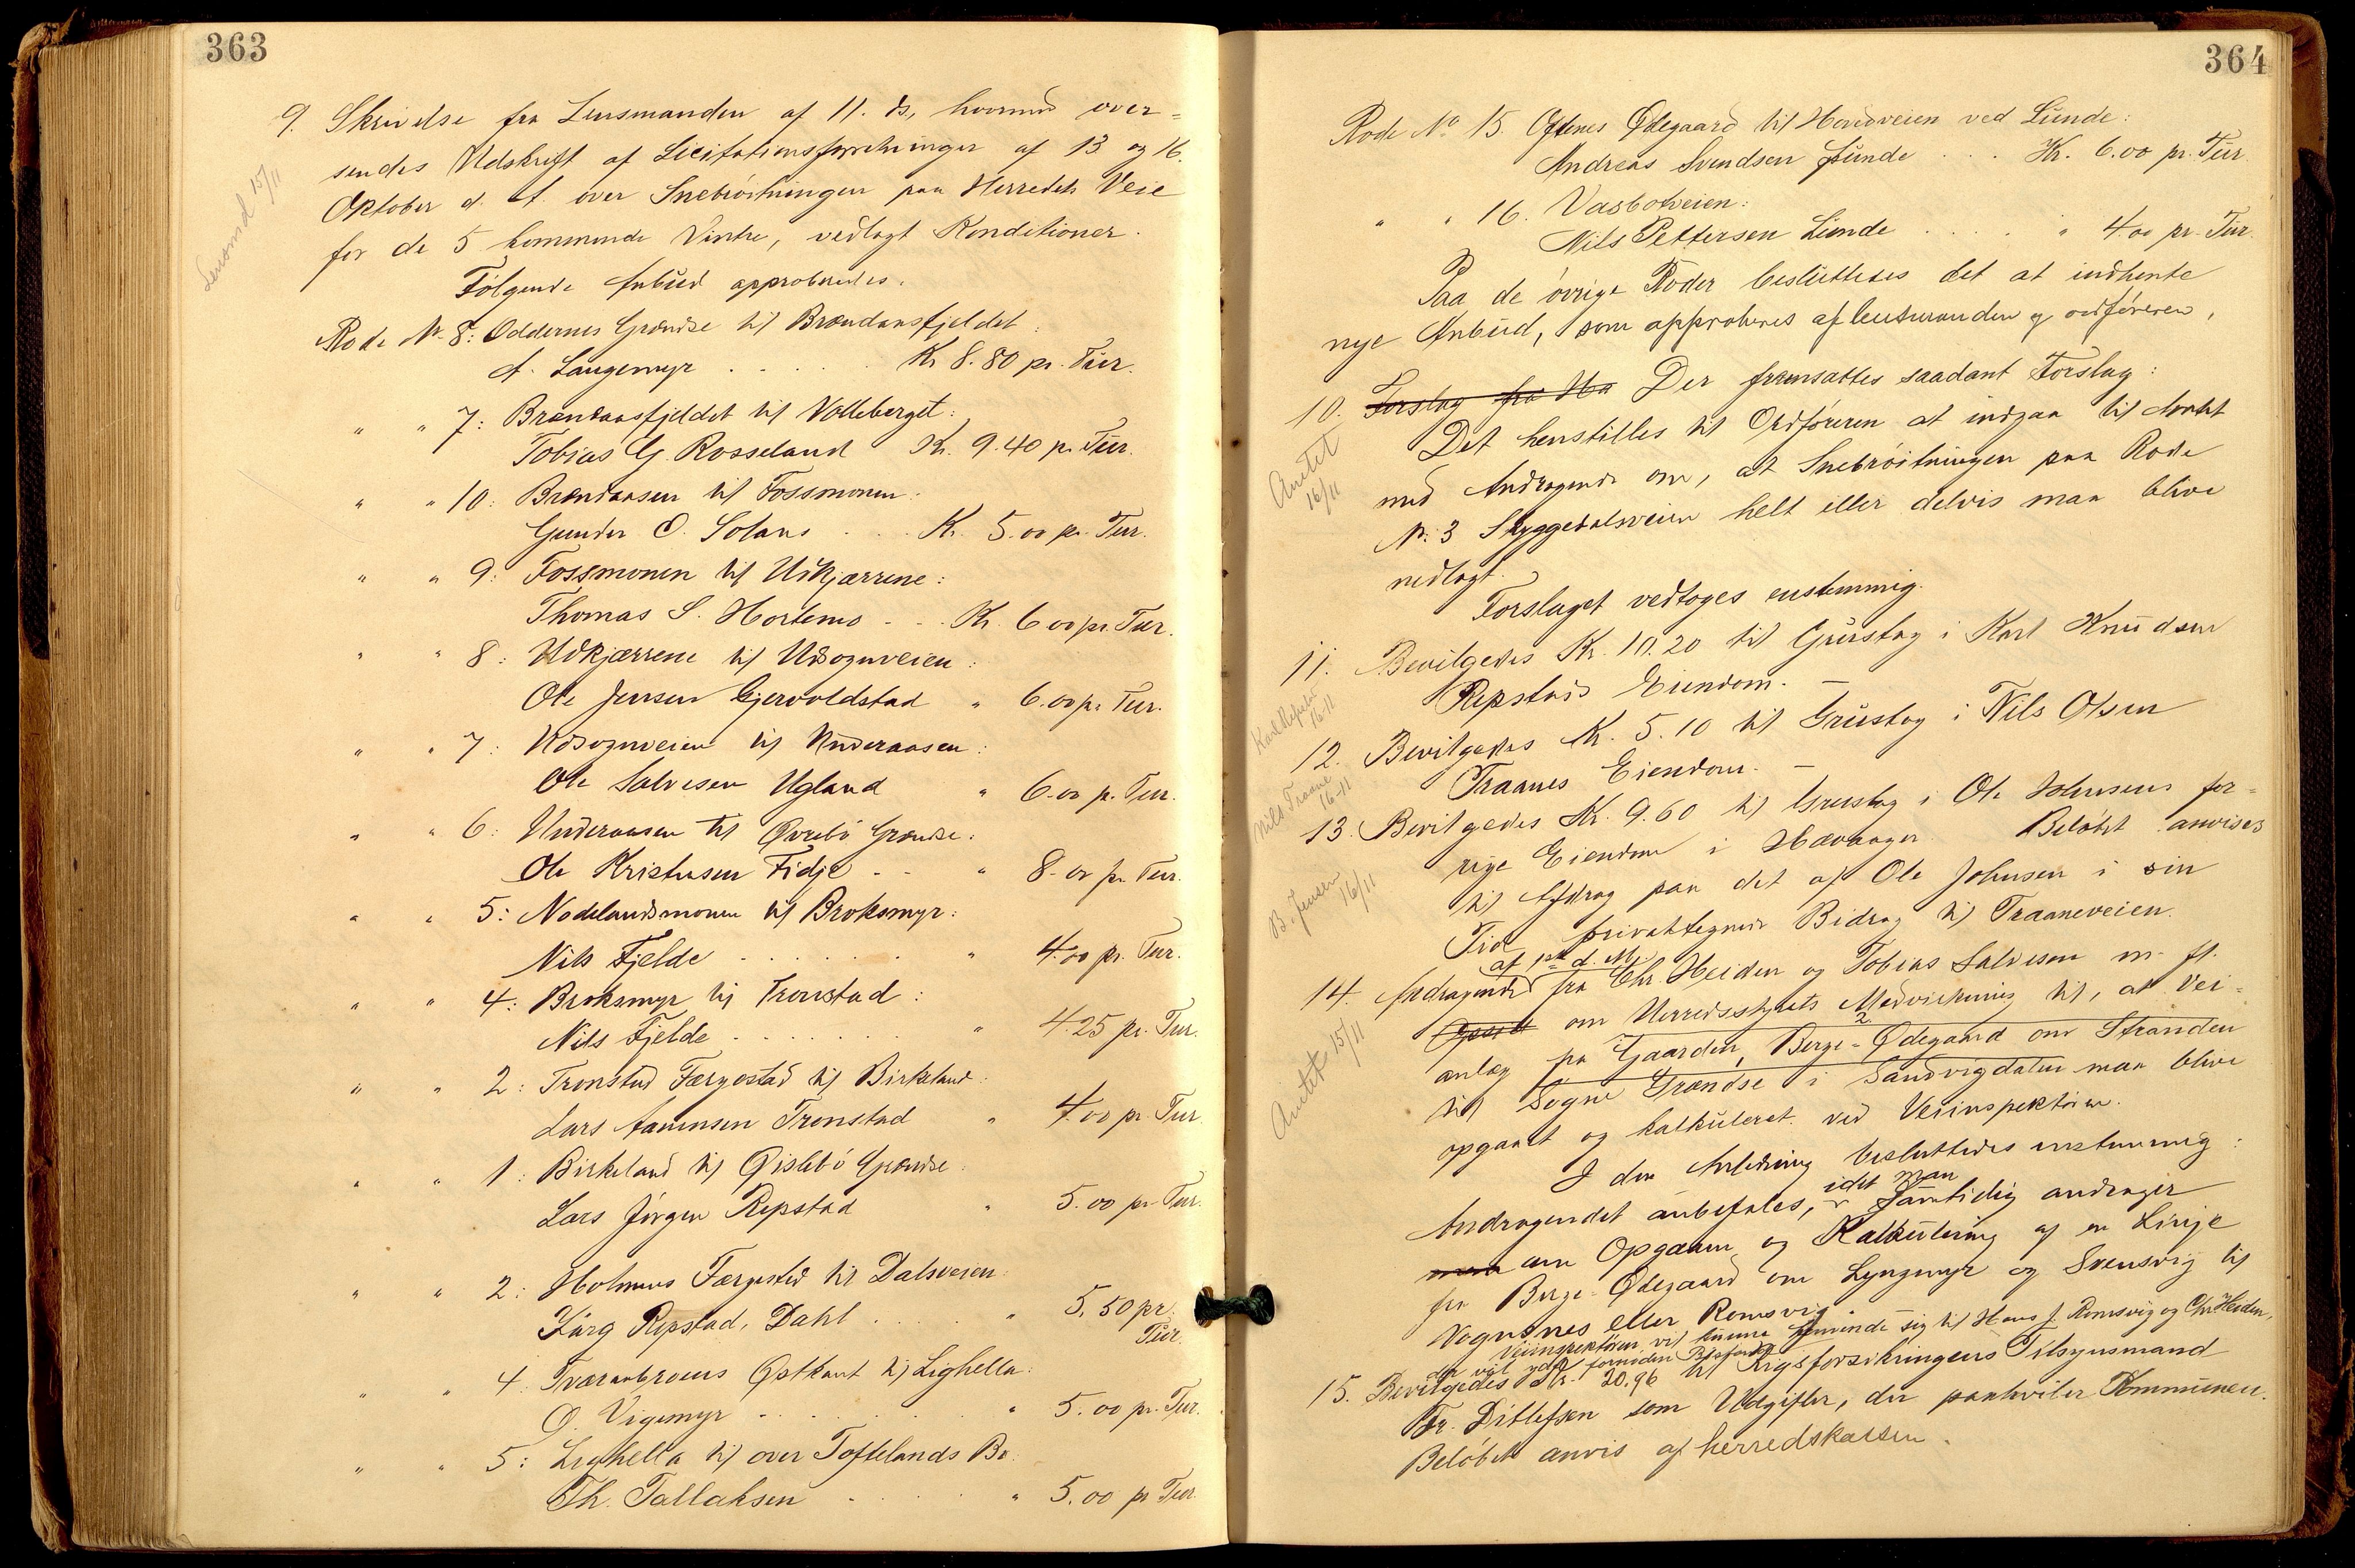 363
9. Skrivelse fra Lensmanden af 11. ds., hvormed over=
sendes Udskrift af Licitationsforretninger af 13 og 16.
Oktober d. A. over Snebröitningen paa Herredets Veie
for de 5 kommende Vintre, vedlagt Konditioner.
Lensmd 15/11
Fölgende Anbud approberedes.
Rode No 8: Oddernes Grændse til Brændaasfjeldet:
A. Langemyr . . . . . Kr 8.80 pr. Tur.
" " 7: Brændaasfjeldet til Volleberget:
Tobias G. Rosseland Kr. 9.40 pr. Tur.
" " 10: Brændaasen til Fossmonen:
Gunder O. Solaas . . . Kr. 5.00 pr. Tur.
" " 9: Fossmonen til Udkjærrene:
Thomas S. Hortemo - - . Kr. 6 00 pr. Tur.
" " 8: Udkjærrene til Udsognveien:
Ole Jensen Gjervoldstad " 6.00 pr. Tur.
" " 7: Udsognveien til Underaasen:
Ole Salvesen Ugland " 6.00 pr. Tur.
" " 6: Underaasen til Øvrebö Grændse:
Ole Kristensen Fidje - - " 8.00 pr. Tur.
" " 5: Nodelandsmonen til Broksmyr:
Nils Fjelde . . . . . . " 4.00 pr. Tur.
" " 4: Broksmyr til Tronstad:
Nils Fjelde . . . . . . . " 4.25 pr. Tur.
" " 2: Tronstad Færgestad til Birkeland:
Lars Aanensen Tronstad " 4.00 pr Tur
" " 1: Birkeland til Øislebö Grændse:
Lars Jörgen Repstad " 5.00 pr Tur.
" " 2: Holmens Færgested til Dalsveien:
Jörg Repstad, Dahl . . . . . " 5.50 pr.
Tur.
" " 4. Tværaabroens Østkant til Lighella:
O. Vigemyr . . . . . . . " 5.00 pr. Tur.
" " 5: Lighella til over Toftelands Bro:
Th. Tallaksen . . . . . " 5.00 pr Tur.
364
Rode No 15. Oftenes Ødegaard til Hovedveien ved Lunde:
Andreas Svendsen Lunde . . . Kr. 6.00 pr. Tur.
" " 16. Vasbotveien:
Nils Pettersen Lunde . . . . " 4.00 pr. Tur.
Paa de övrige Roder besluttedes det at indhente
nye Anbud, som approberes af lensmanden og ordföreren.
10. Forslag fra Ha Der fremsattes saadant Forslag:
Det henstilles til Ordföreren at indgaa til Amtet
Amtet 16/11
med Andragende om, at Snebröitningen paa Rode
No. 3 Skyggedalsveien helt eller delvis maa blive
nedlagt.
Forslaget vedtoges enstemmig.
11. Bevilgedes Kr. 10.20 til Grustag i Karl Knudsen
Repstads Eiendom. —
Karl Repstad 16-11
12. Bevilgedes Kr. 5.10 til Grustag i Nils Olsen
Traanes Eiendom. —
Nils Traane 16-11
13. Bevilgedes Kr. 9.60 til Grustag i Ole Johnsens for=
rige Eiendom i Hævaager. Belöbet anvises
til Afdrag paa det af Ole Johnsen i sin
Tid privattegnede Bidrag til Traaneveien.
B. Jensen 16/11
af 1ste d. M.
14. Andragende fra Chr. Heiden og Tobias Salvesen m. fl.
om Herredsstyrets Medvirkning til, at Vei=
2.
anlæg fra Gaarden, Berge-Ødegaard over Stranden
til Sögne Grændse i Sandvigdalen maa blive
opgaaet og kalkuleret ved Veiinspektören.
Amtet 15/11
I den Anledning besluttedes enstemmig:
idet man
Andragendet anbefales, samtidig andrager
man om Opgaaen og Kalkulering af en Linje
fra Berge-Ødegaard om Lyngmyr og Svensvig til
Vognsnes eller Romsvig.
Veiinspektören vil kunne henvende sig til Hans J. Romsvig og Chr Heiden,
der vil yde fornöden Bistand
15. Bevilgedes Kr. 20.96 til Rigsforsikringens Tilsynsmand
Fr. Ditlefsen som Udgifter, der paahviler Kommunen.
Belöbet anvis. af herredskassen.